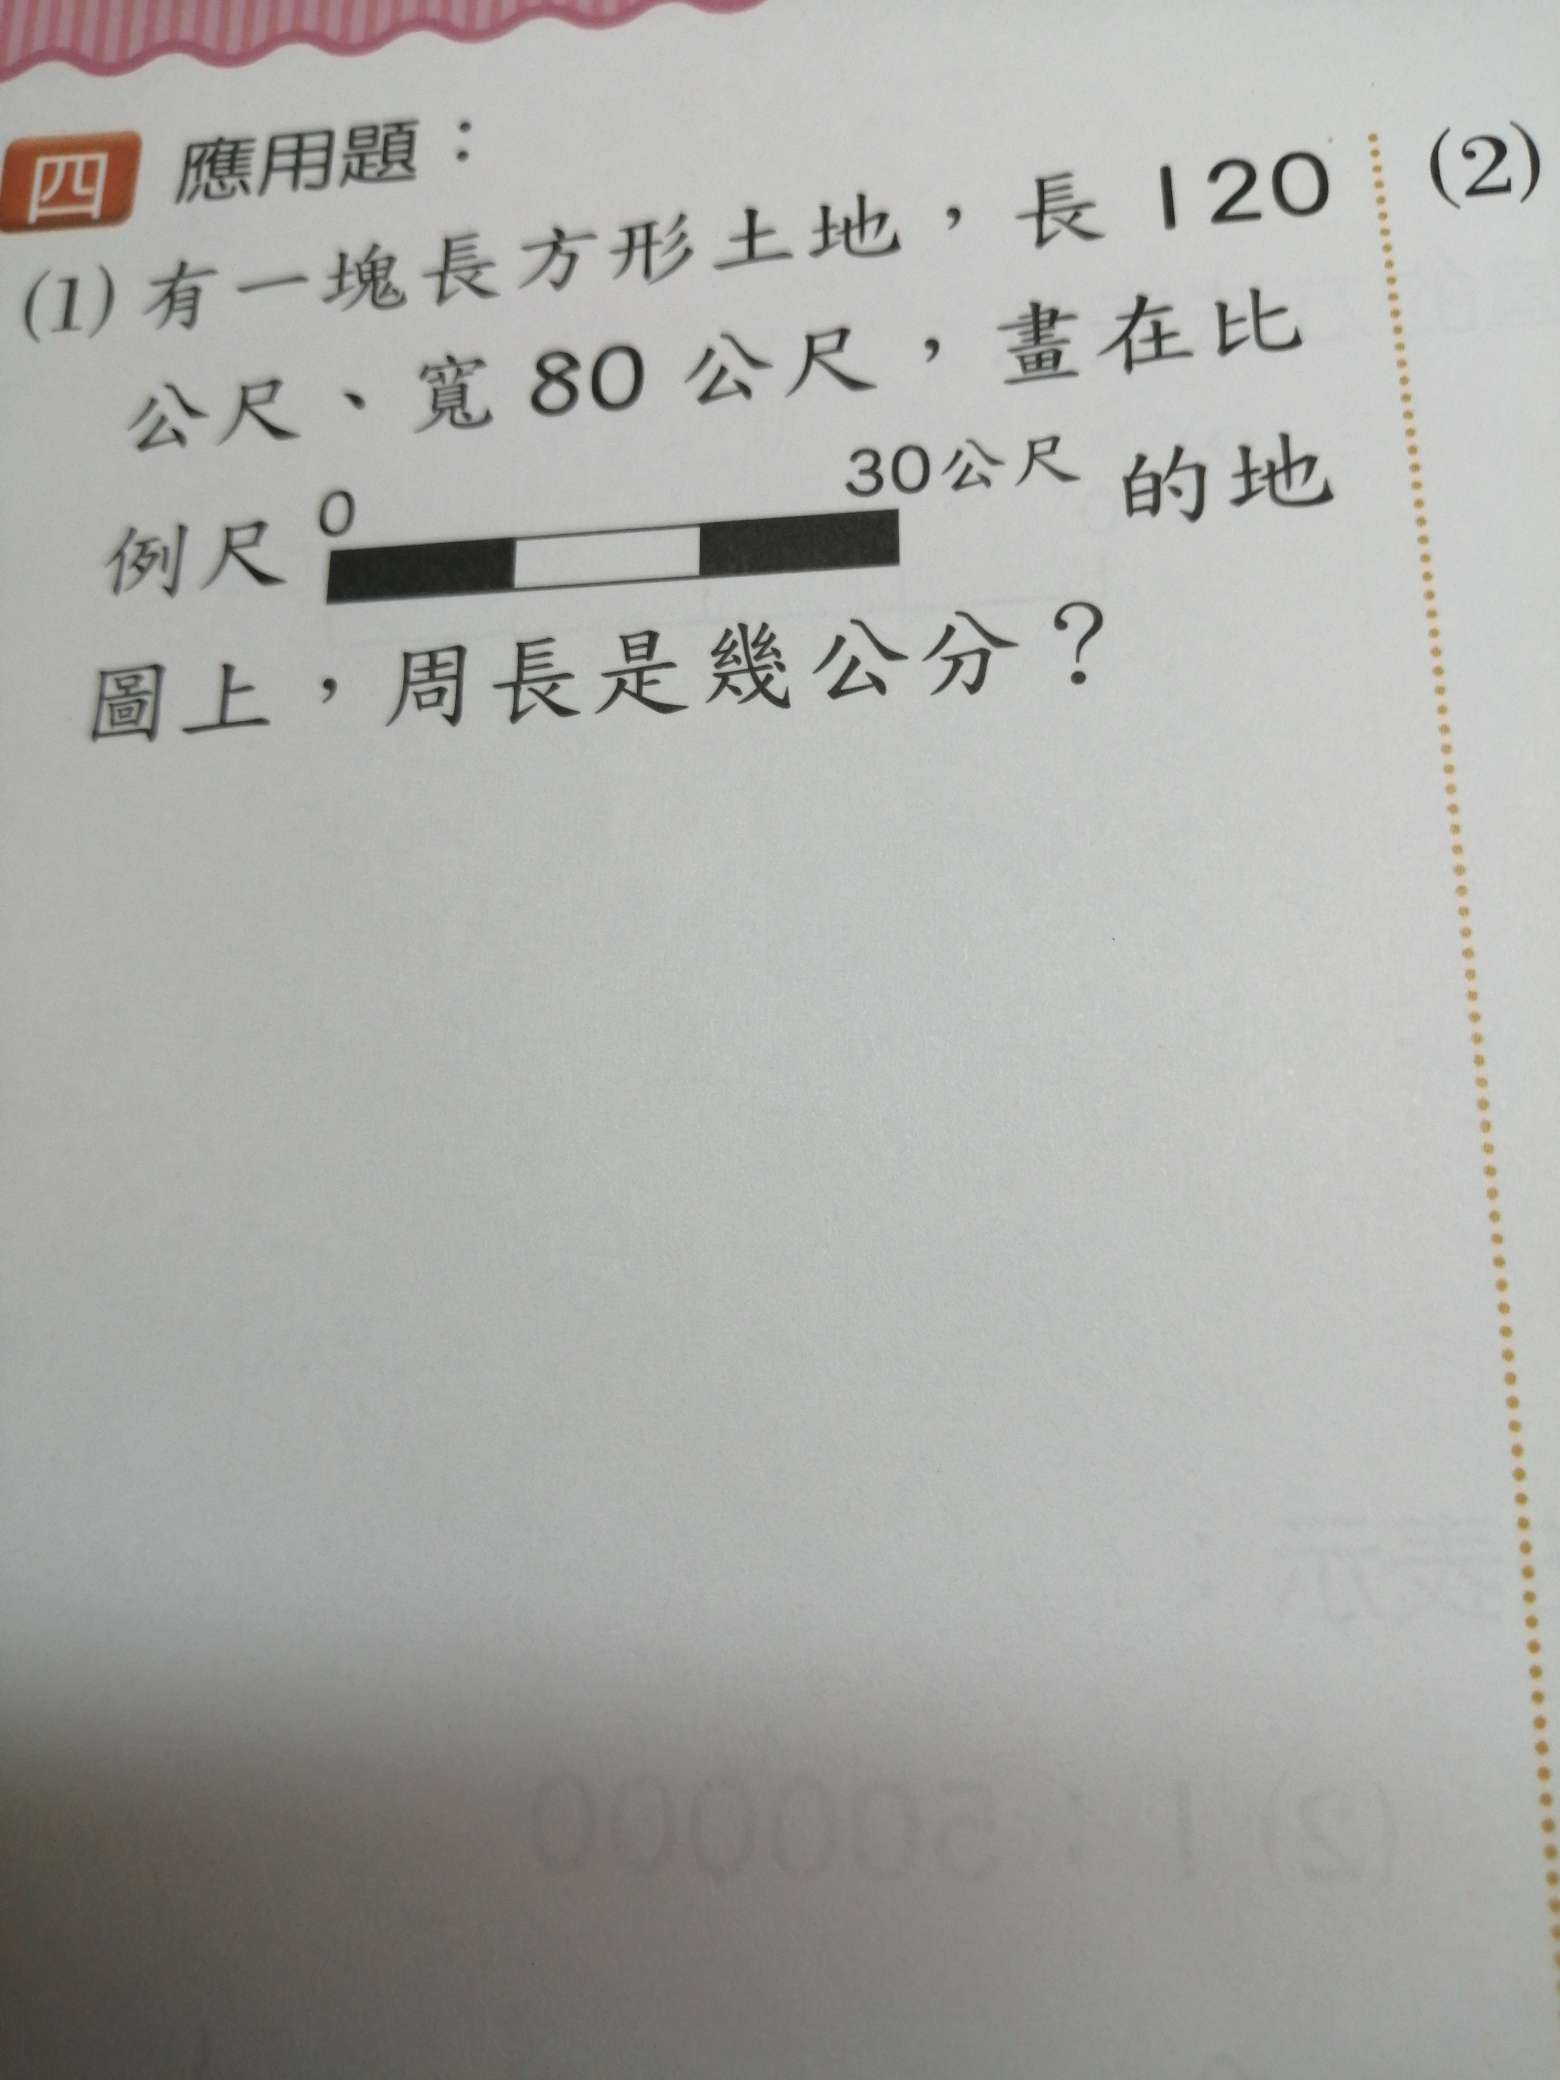 四 應用題：
(1) 有一塊長方形土地，長 120
公尺、寬 80 公尺，畫在比
0 30公尺
例尺 的地
圖上，周長是幾公分？
(2)